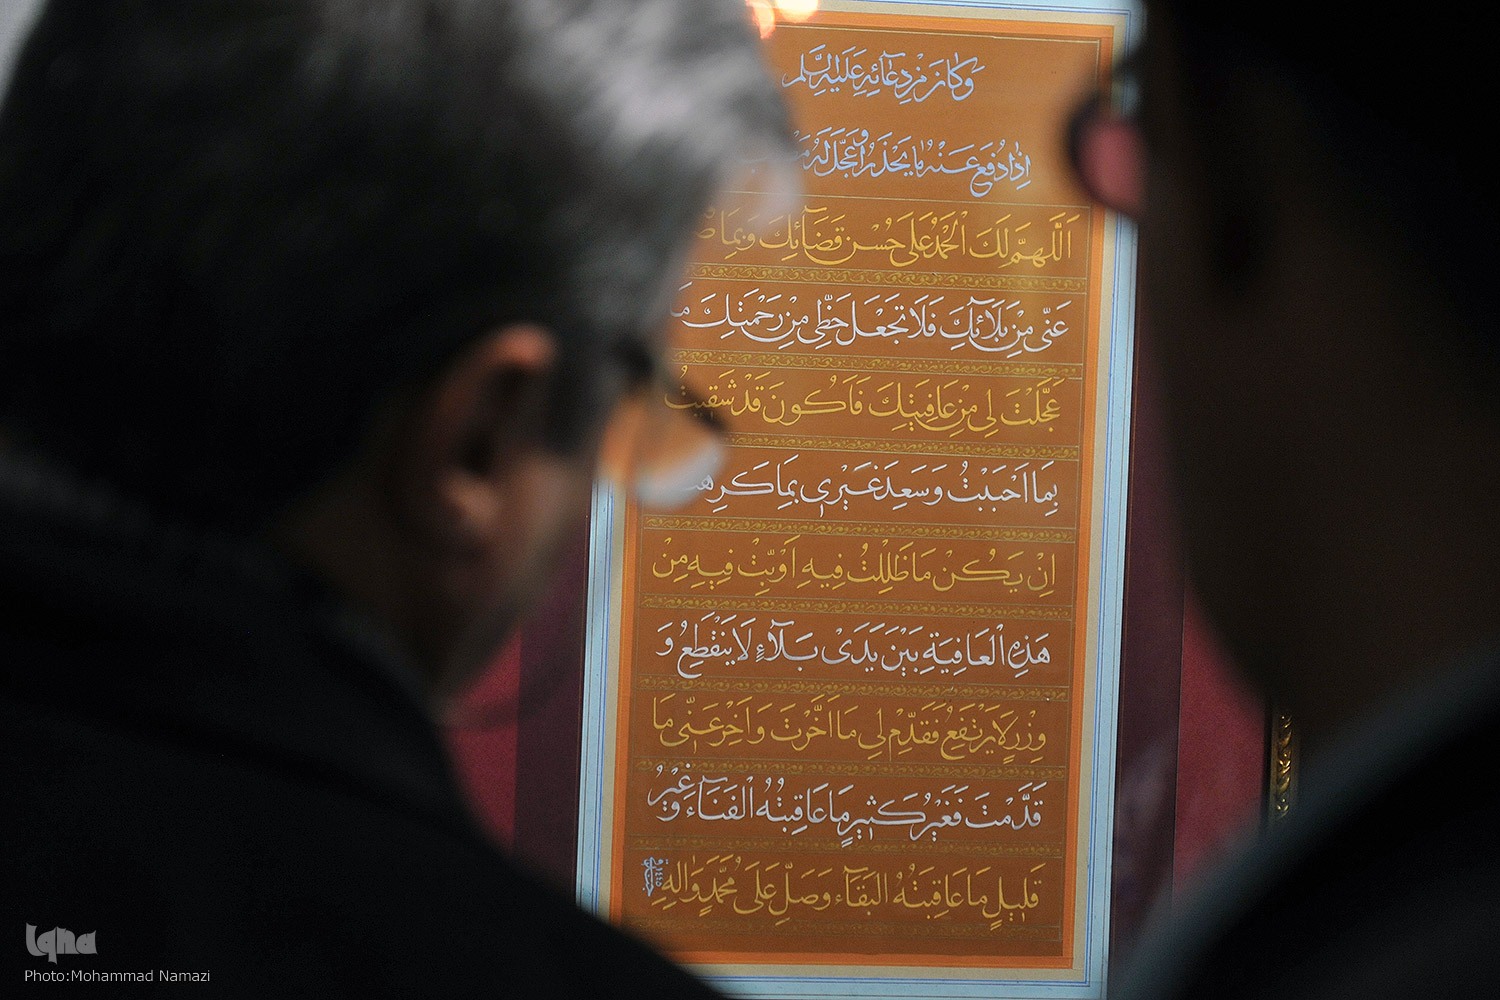 وَكَانَ مِنْ دُعَائِهِ عَلَيْهِ السَّلَم
اِذَا دُفِعَ عَنْهُ مَا يَحْذَرُ اَوْ عُجِّلَ لَهُ
اَللَّهُمَّ لَكَ الْحَمْدُ عَلَى حُسْنِ قَضَائِكَ وَبِمَا
عَنّى مِنْ بَلَائِكَ فَلَا تَجْعَلْ حَظِّى مِنْ رَحْمَتِكَ
عَجَّلْتَ لِى مِنْ عَافِيَتِكَ فَاَكُونَ قَدْ شَقِيتُ
بِمَا اَحْبَبْتُ وَسَعِدَ غَيْرِى بِمَا
اِنْ يَكُنْ مَا ظَلِلْتُ فِيهِ اَوْ بِتُّ فِيهِ مِنْ
هَذِهِ الْعَافِيَةِ بَيْنَ يَدَىْ بَلَآءٍ لَا يَنْقَطِعُ وَ
وِزْرٍ لَا يَرْتَفِعُ فَقَدِّمْ لِى مَا اَخَّرْتَ وَاَخِّرْ عَنّى مَا
قَدَّمْتَ فَغَيْرُ كَثِيرٍ مَا عَاقِبَتُهُ الْفَنَآءُ وَغَيْرُ
قَلِيلٍ مَا عَاقِبَتُهُ الْبَقَآء وَصَلِّ عَلَى مُحَمَّدٍ وَالِهِ
Iqna
Photo:Mohammad Namazi